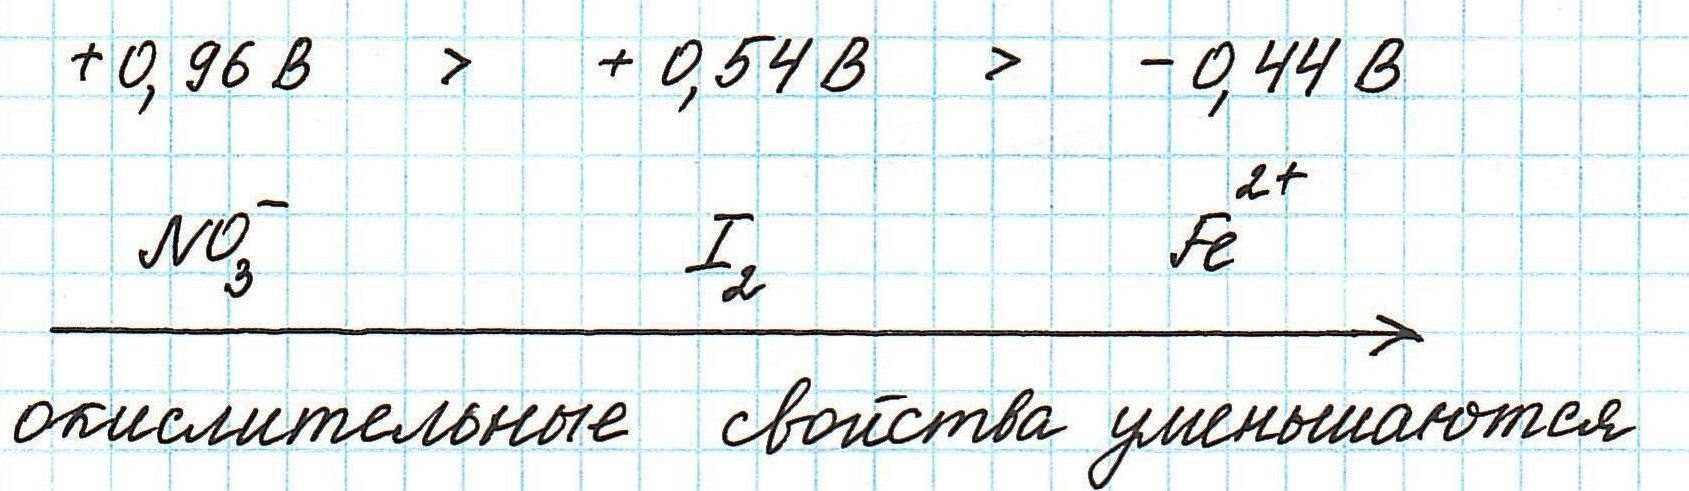 +0,96 В > +0,54 В > -0,44 В
NO₃⁻ I₂ Fe²⁺
окислительные свойства уменьшаются